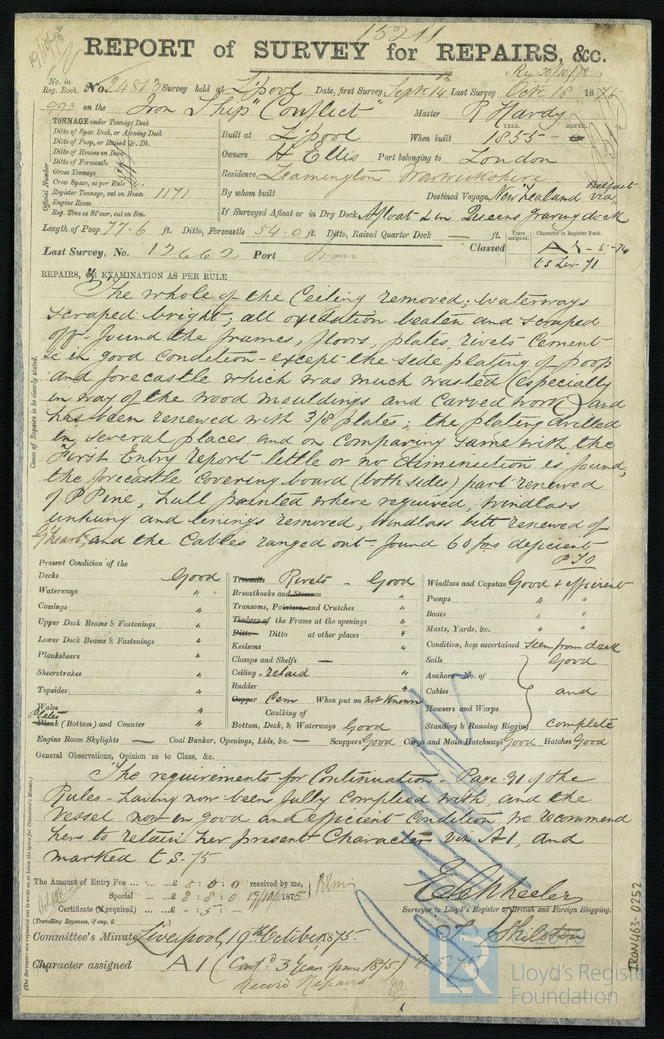 15211
REPORT of SURVEY for REPAIRS, &c.
No. in Reg. Book. No. 24813 Survey held at L'pool Date, first Survey Sept 14th Last Survey Octr 18 1875
993 on the Iron Ship "Conflict" Master R Hardy
TONNAGE under Tonnage Deck
Ditto of Spar Deck, or Awning Deck
Ditto of Poop, or Raised Qr. Dk.
Ditto of Houses on Deck
Ditto of Forecastle
Gross Tonnage
Crew Space, as per Rule
Register Tonnage, cut on Beam 1171
Engine Room
Reg. Tons as St'mer, cut on Bm.
Official Number
YEAR. MONTH.
Built at L'pool When built 1855
Owners H Ellis Port belonging to London
Residence Leamington Warwickshire
By whom built Destined Voyage New Zealand via Belfast
If Surveyed Afloat or in Dry Dock Afloat & in Queens graving dock
Length of Poop 77.6 ft. Ditto, Forecastle 54.0 ft. Ditto, Raised Quarter Deck ft.
Years assigned. Character in Register Book.
Last Survey, No. 12662 Port Classed A1 - 5-74
ts Liv-71
REPAIRS, EXAMINATION AS PER RULE
The whole of the Ceiling removed; waterways
scraped bright; all oxidation beaten and scraped
off - found the frames, floors, plates, rivets Cement
&c in good Condition - except the side plating of poop
and forecastle which was much wasted (especially
in way of the wood mouldings and carved work) and
has been renewed with 3/8 plates; the plating drilled
in several places and on Comparing same with the
First Entry Report little or no diminution is found,
the forecastle covering board (both sides) part renewed
of P Pine, hull painted where required; Windlass
unhung and linings removed, Windlass bitt renewed of
G'heart, and the Cables ranged out - found 60 fms deficient
P.T.O
Cause of Repairs to be clearly stated.
Present Condition of the
Decks Good
Waterways "
Comings "
Upper Deck Beams & Fastenings "
Lower Deck Beams & Fastenings "
Planksheers "
Sheerstrakes "
Topsides "
Wales "
Plates
Plank (Bottom) and Counter "
Treenails Rivets - Good
Breasthooks and Stemson "
Transoms, Pointers, and Crutches "
Timbers of the Frame at the openings "
Ditto Ditto at other places "
Keelsons "
Clamps and Shelfs -
Ceiling relaid
Rudder "
Copper Cem When put on Not Known
Caulking of
Bottom, Deck, & Waterways Good
Windlass and Capstan Good & efficient
Pumps " "
Boats " "
Masts, Yards, &c. " "
Condition, how ascertained seen from deck
Sails Good
Anchors No. of
Cables and
Hawsers and Warps
Standing & Running Rigging complete
Engine Room Skylights - Coal Bunker, Openings, Lids, &c. - Scuppers Good Cargo and Main Hatchways Good Hatches Good
General Observations, Opinion as to Class, &c.
The requirements for Continuation - Page 91 of the
Rules - having now been fully complied with, and the
Vessel now in good and efficient Condition, we recommend
her to retain her present Character viz A1, and
marked t.S.-75
The Amount of Entry Fee £ 5 : 0 : 0 received by me,
Special £ 8 : 8 : 0 1875
Certificate (if required) £ - 5 -
(Travelling Expenses, if any, £
Surveyor to Lloyd's Register of British and Foreign Shipping.
Committee's Minute Liverpool, 19th October, 1875.
Character assigned A1 (Contd 3 Years from 1875)
Record Repairs
Lloyd's Register
Foundation
IRON463-0252